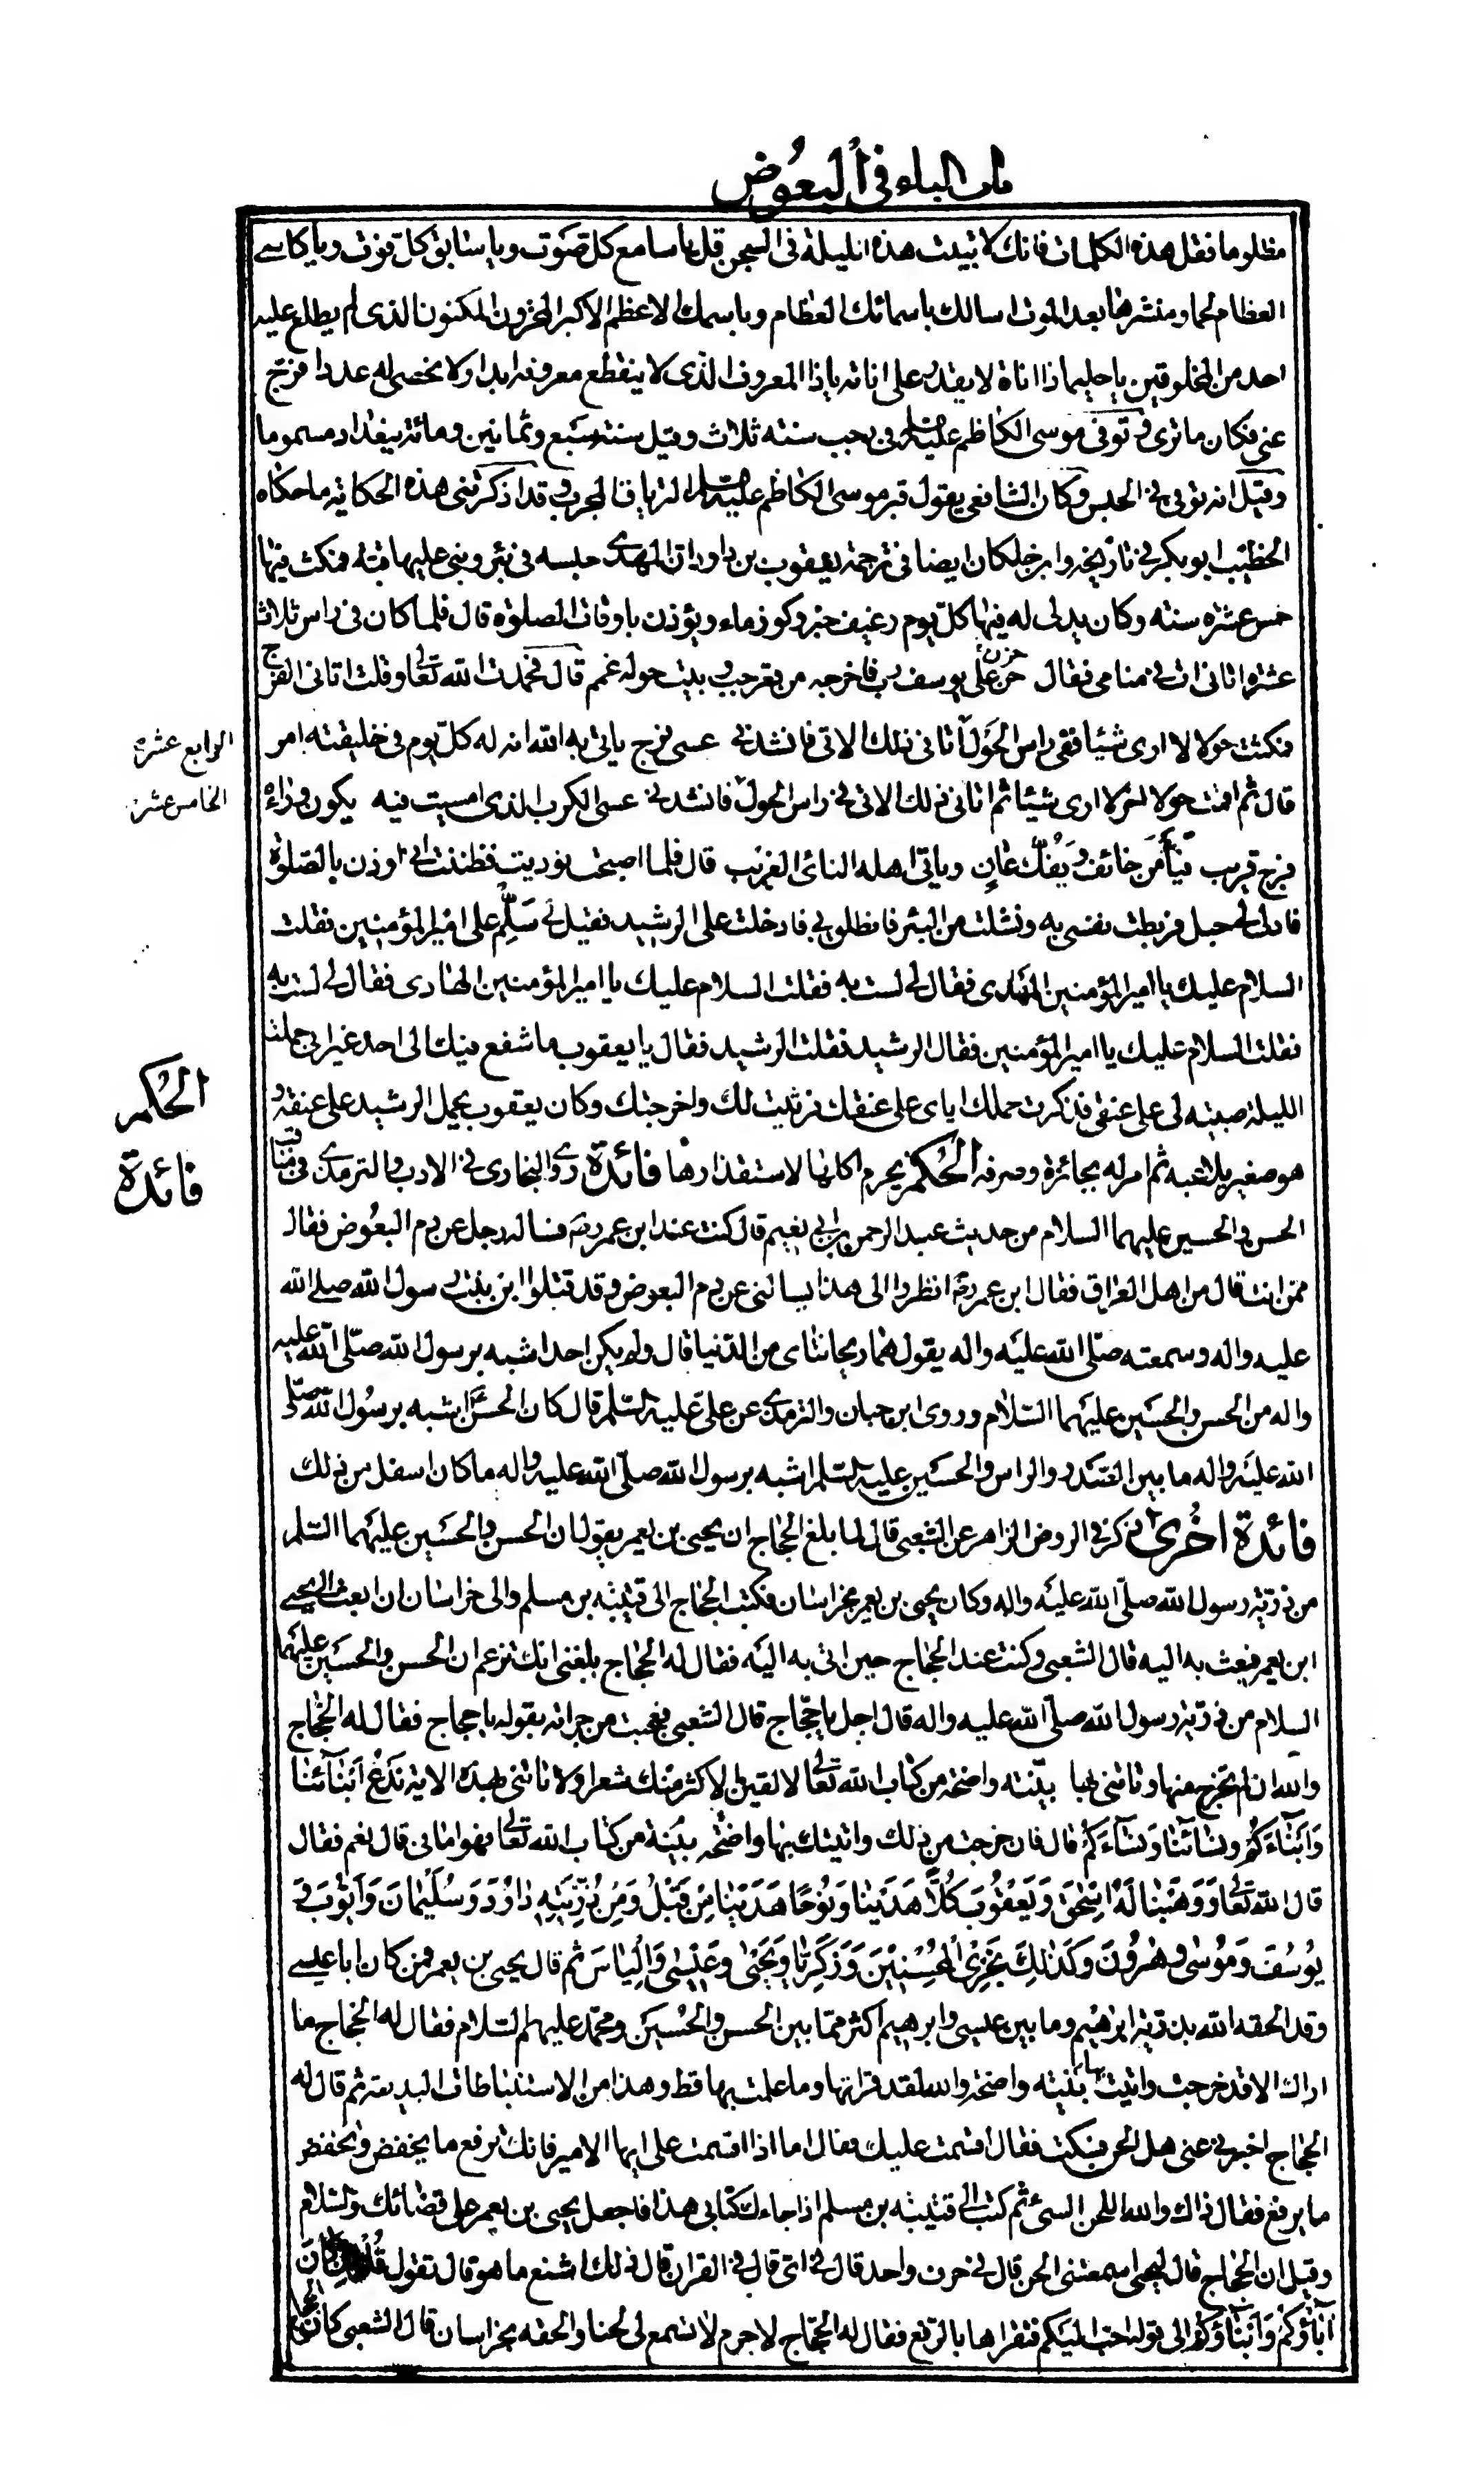 باب الباء فى البعوض
مظلوما فقل هذه الكلمات فانك لا تبيت هذه الليلة فى السجن قل يا سامع كل صوت ويا سابق كل فوت ويا كاسى
العظام لحما ومنشرها بعد الموت اسالك باسمائك العظام وباسمك الاعظم الاكبر المخزون المكنون الذى لم يطلع عليه
احد من المخلوقين يا حليما ذا اناة لا يقدر على اناته يا ذا المعروف الذى لا ينقطع معروفه ابدا ولا نحصى له عددا فرج
عنى فكان ما ترى وتوفى موسى الكاظم عليه السلم فى رجب سنة ثلاث وقيل سنة سبع وثمانين ومائة ببغداد مسموما
وقيل انه توفى فى الحبس وكان الشافعى يقول قبر موسى الكاظم عليه السلم الترياق المجرب وقد اذكرتنى هذه الحكاية ما حكاه
الخطيب ابو بكر فى تاريخه وابن خلكان ايضا فى ترجمة يعقوب بن داود ان المهدى حبسه فى بئر وبنى عليها قبة فمكث فيها
خمس عشرة سنة وكان يدلى له فيها كل يوم رغيف خبز وكوز ماء ويؤذن باوقات الصلوة قال فلما كان فى راس ثلاث
عشرة اتانى ات فى منامى فقال حن على يوسف رب فاخرجه من قعر جب وبيت حوله غمم قال فحمدت الله تعالى وقلت اتانى الفرج
فمكثت حولا لا ارى شيئا ففى راس الحول اتانى ذلك الاتى فانشدنى عسى فرج ياتى به الله انه له كل يوم فى خليقته امر
قال ثم اقمت حولا اخر لا ارى شيئا ثم اتانى ذلك الاتى فى راس الحول فانشدنى عسى الكرب الذى امسيت فيه يكون وراءه
فرج قريب فيأمن خائف ويفك عان وياتى اهله النائى الغريب قال فلما اصبحت نوديت فظننت انى اوذن بالصلوة
فادلى لى حبل فربطت نفسى به ونشلت من البئر فانطلق بى فادخلت على الرشيد فقيل لى سلم على امير المؤمنين فقلت
السلام عليك يا امير المؤمنين المهدى فقال لى لست به فقلت السلام عليك يا امير المؤمنين الهادى فقال لى لست به
فقلت السلام عليك يا امير المؤمنين فقال الرشيد فقلت الرشيد فقال يا يعقوب ما شفع فيك الى احد غير انى حملت
الليلة صبية لى على عنقى فذكرت حملك اياى على عنقك فرثيت لك واخرجتك وكان يعقوب يحمل الرشيد على عنقه و
هو صغير يلاعبه ثم امر له بجائزة وصرفه الحكم يحرم اكلها لاستقذارها فائدة روى البخارى فى الادب والترمذى فى مناقب
الحسن والحسين عليهما السلام من حديث عبد الرحمن بن ابى نعيم قال كنت عند ابن عمر رضى فساله رجل عن دم البعوض فقال
ممن انت قال من اهل العراق فقال ابن عمر رضى انظروا الى هذا يسالنى عن دم البعوض وقد قتلوا ابن بنت رسول الله صلى الله
عليه واله وسمعته صلى الله عليه واله يقول هما ريحانتاى من الدنيا قال ولم يكن احد اشبه برسول الله صلى الله عليه
واله من الحسن والحسين عليهما السلام وروى ابن حبان والترمذى عن على عليه السلم قال كان الحسن اشبه برسول الله صلى
الله عليه واله ما بين الصدر والراس والحسين عليه السلم اشبه برسول الله صلى الله عليه واله ما كان اسفل من ذلك
فائدة اخرى ذكر فى الروض الزاهر عن الشعبى قال لما بلغ الحجاج ان يحيى بن يعمر يقول ان الحسن والحسين عليهما السلم
من ذرية رسول الله صلى الله عليه واله وكان يحيى بن يعمر بخراسان فكتب الحجاج الى قتيبة بن مسلم والى خراسان ان ابعث الى بيحيى
ابن يعمر فبعث به اليه قال الشعبى وكنت عند الحجاج حين اتى به اليه فقال له الحجاج بلغنى انك تزعم ان الحسن والحسين عليهما
السلام من ذرية رسول الله صلى الله عليه واله قال اجل يا حجاج قال الشعبى فعجبت من جراته بقوله يا حجاج فقال له الحجاج
والله ان لم تخرج منها وتاتنى بها بينة واضحة من كتاب الله تعالى لالقين الاكثر منك شعرا ولا تاتنى بهذه الاية ندع ابنآئنا
وابنآءكم ونسآئنا ونسآءكم قال فان خرجت من ذلك واتيتك بها واضحة بينة من كتاب الله تعالى فهو امانى قال نعم فقال
قال الله تعالى ووهبنا له اسحق ويعقوب كلا هدينا ونوحا هدينا من قبل ومن ذريته داود وسليمان وايوب و
يوسف وموسى وهرون وكذلك نجزى المحسنين وزكريا ويحيى وعيسى والياس ثم قال يحيى بن يعمر فمن كان ابا عيسى
وقد الحقه الله بذرية ابرهيم وما بين عيسى وابرهيم اكثر مما بين الحسن والحسين ومحمد عليهم السلام فقال له الحجاج ما
اراك الا قد خرجت واتيت بها بينة واضحة والله لقد قراتها وما علمت بها قط وهذا من الاستنباطات البديعة ثم قال له
الحجاج اخبرنى عنى هل الحن فسكت فقال اقسمت عليك فقال اما اذا اقسمت على ايها الامير فانك ترفع ما يخفض وتخفض
ما يرفع فقال ذاك والله اللحن السئ ثم كتب الى قتيبة بن مسلم اذا جاءك كتابى هذا فاجعل يحيى بن يعمر على قضائك والسلام
وقيل ان الحجاج قال ليحيى اسمعتنى الحن قال فى حرف واحد قال فى اى قال فى القران قال ذلك اشنع ما هو قال تقول قل ان كان
آباؤكم وابنآؤكم الى قوله احب اليكم فتقراها بالرفع فقال له الحجاج لا جرم لا تسمع لى لحنا والحقه بخراسان قال الشعبى كان
الرابع عشرة
الخامس عشر
الحكم
فائدة